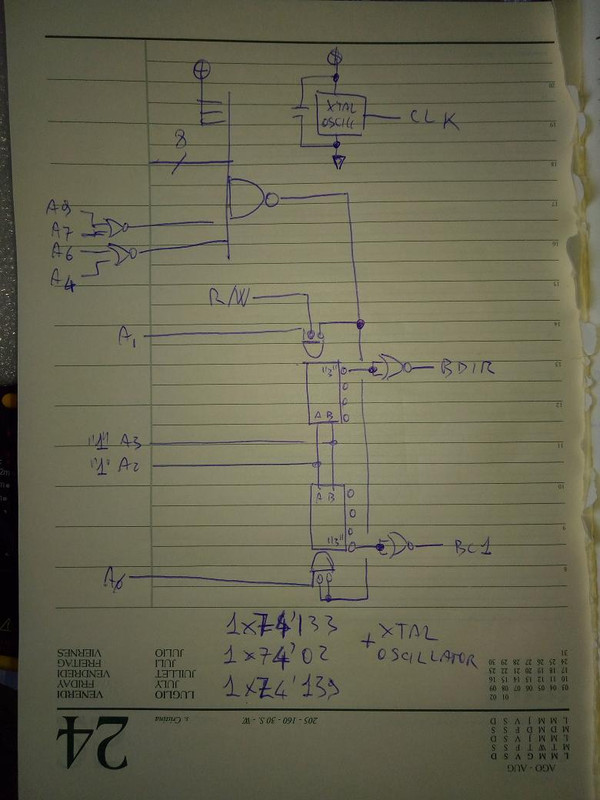 XTAL
OSCILL
CLK
8
A9
A7
A6
A4
R/W
A1
"3"
BDIR
A B
"1" A3
"1" A2
A B
"3"
BC1
A0
1x74'133
1x74'02
1x74'139
+ XTAL
OSCILLATOR
24
VENERDI
FRIDAY
VENDREDI
FREITAG
VIERNES
LUGLIO
JULY
JUILLET
JULI
JULIO
s. Cristina
205 - 160 - 30 S. - W
AGO - AUG